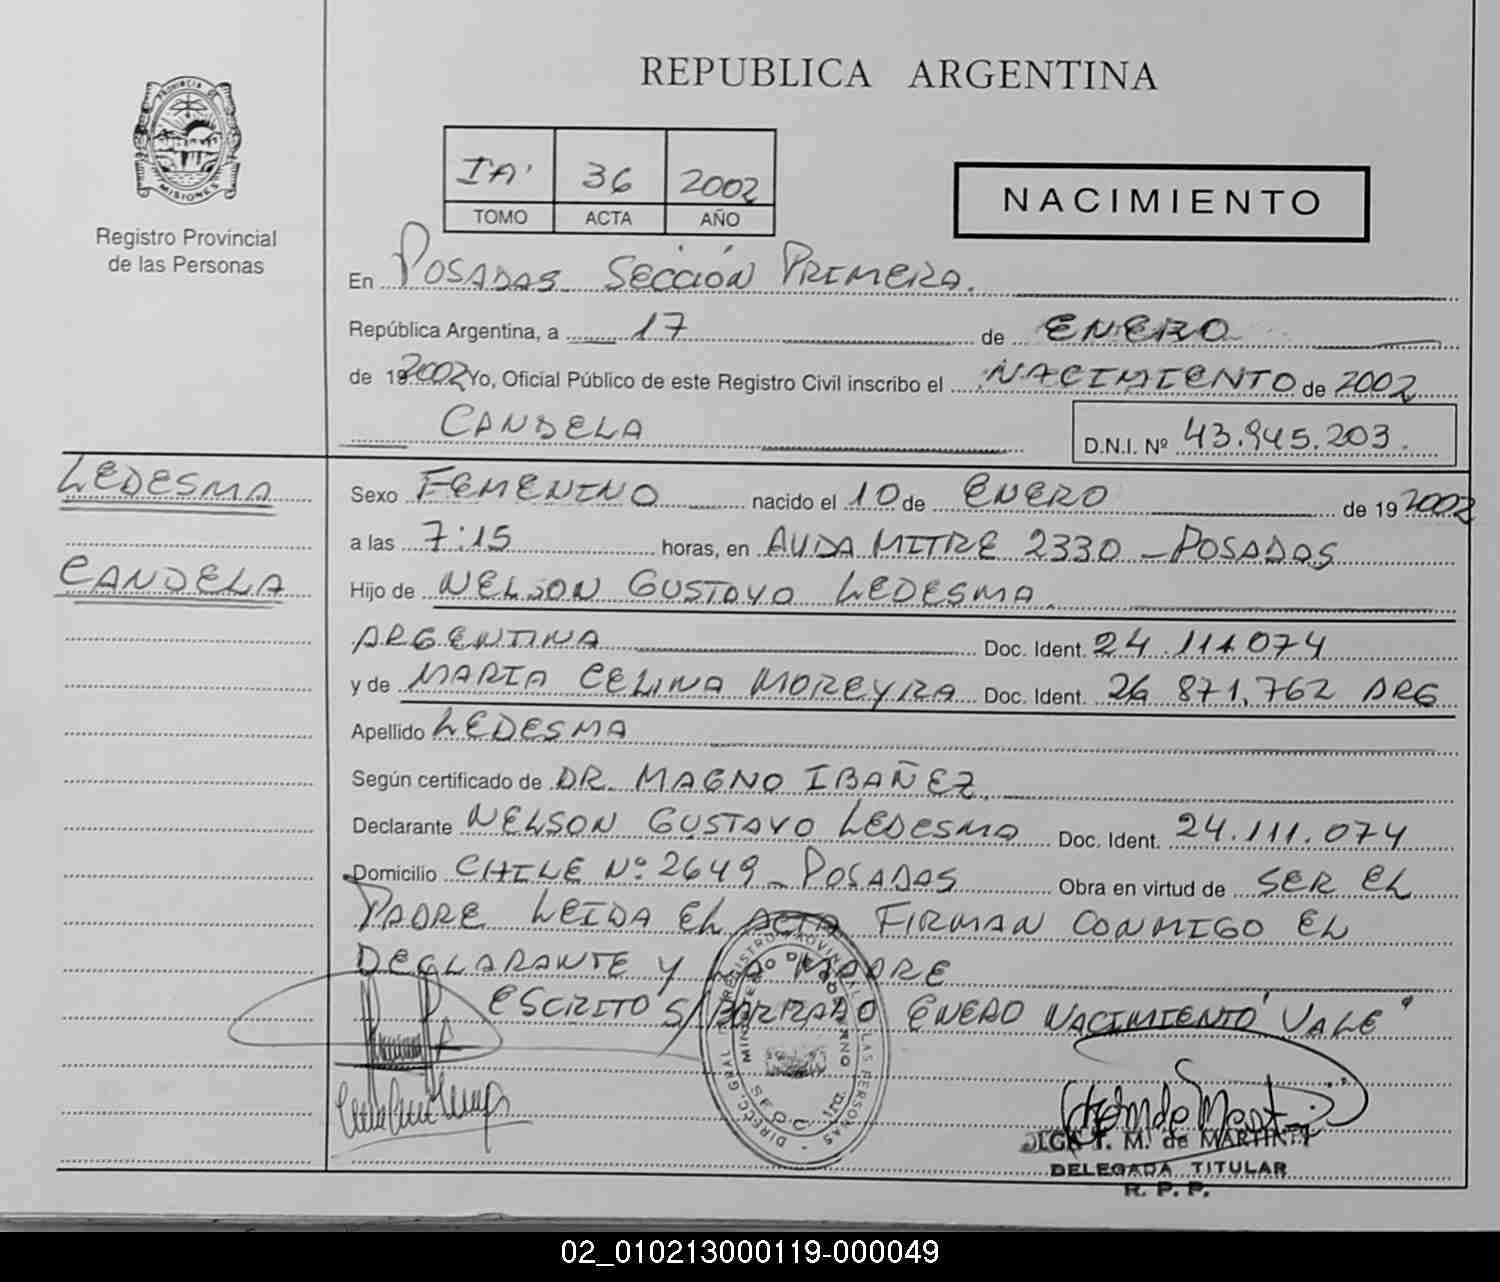 REPUBLICA ARGENTINA
PROVINCIA DE
MISIONES
Registro Provincial
de las Personas
IA' 36 2002
TOMO ACTA AÑO
NACIMIENTO
En POSADAS SECCIÓN PRIMERA.
República Argentina, a 17 de ENERO
de 19 2002 Yo, Oficial Público de este Registro Civil inscribo el NACIMIENTO de 2002
CANDELA D.N.I. Nº 43.945.203.
LEDESMA
CANDELA
Sexo FEMENINO nacido el 10 de ENERO de 19 2002
a las 7:15 horas, en AVDA MITRE 2330 - POSADAS
Hijo de NELSON GUSTAVO LEDESMA
ARGENTINA Doc. Ident. 24.111.074
y de MARIA CELINA MOREYRA Doc. Ident. 26 871,762 ARG
Apellido LEDESMA
Según certificado de DR. MAGNO IBAÑEZ
Declarante NELSON GUSTAVO LEDESMA Doc. Ident. 24.111.074
Domicilio CHILE Nº 2649 - POSADAS Obra en virtud de SER EL
PADRE LEIDA EL ACTA FIRMAN CONMIGO EL
DECLARANTE Y LA MADRE
ESCRITO S/BORRADO ENERO NACIMIENTO "VALE"
DIRECC. GRAL REGISTRO PROVINCIAL DE LAS PERSONAS
MINISTERIO DE GOBIERNO
SECC. 1ra.
OLGA T. M. de MARTINEZ
DELEGADA TITULAR
R. P. P.
02_010213000119-000049